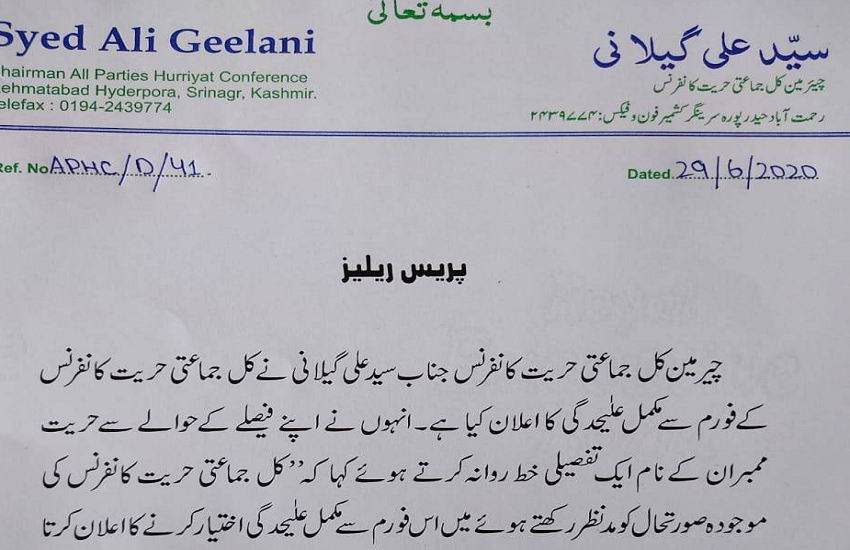 بسمہ تعالیٰ
Syed Ali Geelani
سیّد علی گیلانی
hairman All Parties Hurriyat Conference
چیئرمین کل جماعتی حریت کانفرنس
ehmatabad Hyderpora, Srinagr, Kashmir.
رحمت آباد حیدرپورہ سرینگر کشمیر فون و فیکس: ۲۴۳۹۷۷۴
elefax : 0194-2439774
Ref. No. APHC/D/41.
Dated. 29/6/2020
پریس ریلیز
چیرمین کل جماعتی حریت کانفرنس جناب سید علی گیلانی نے کل جماعتی حریت کانفرنس
کے فورم سے مکمل علیٰحدگی کا اعلان کیا ہے۔ انہوں نے اپنے فیصلے کے حوالے سے حریت
ممبران کے نام ایک تفصیلی خط روانہ کرتے ہوئے کہا کہ ’’کل جماعتی حریت کانفرنس کی
موجودہ صورتحال کو مدنظر رکھتے ہوئے میں اس فورم سے مکمل علیٰحدگی اختیار کرنے کا اعلان کرتا